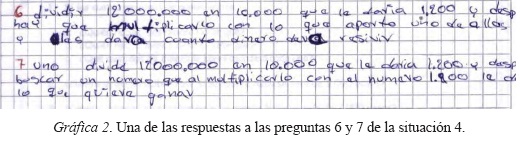 6 dividir 12'000.000 en 10.000 que le daria 1.200 y desp
hay que multiplicarlo con lo que aporto uno de ellos
y les dara cuanto dinero deve resivir
7 uno divide 12000.000 en 10.000 que le daria 1.200 y desp
buscar un numero que al multiplicarlo con el numero 1.200 le d
lo que quiere ganar
Gráfica 2. Una de las respuestas a las preguntas 6 y 7 de la situación 4.